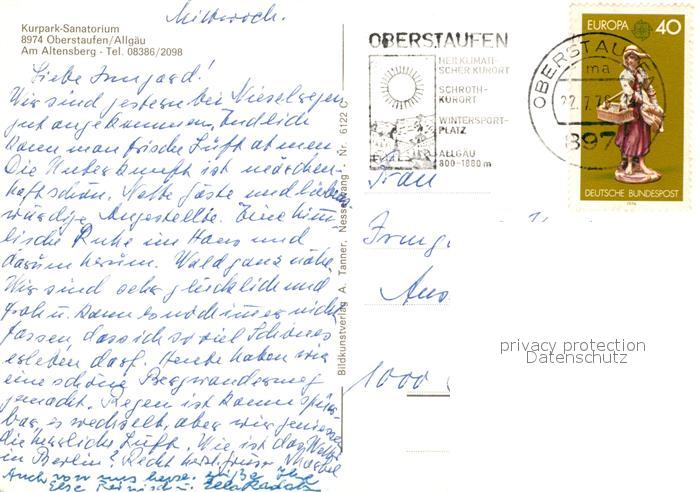 Mittwoch.
Kurpark-Sanatorium
8974 Oberstaufen/Allgäu
Am Altensberg - Tel. 08386/2098
Liebe Irmgard!
Wir sind gestern bei Nieselregen
gut angekommen. Endlich
kann man frische Luft atmen.
Die Unterkunft ist märchen-
haft schön. Nette Gäste und liebens
würdige Angestellte. Eine himm-
lische Ruhe im Haus und
darum herum. Wald ganz nahe.
Wir sind sehr glücklich und
froh u. kann es noch immer nicht
fassen, dass ich so viel Schönes
erleben darf. Heute haben wir
eine schöne Bergwanderung
gemacht. Regen ist kaum spür-
bar, es wechselt, aber wir geniessen
die herrliche Luft. Wie ist das Wetter
in Berlin? Recht herzl.
Auch von uns herzl. Grüße Ihre
Else u.
Bildkunstverlag A. Tanner, Nesselwang · Nr. 6122 C
OBERSTAUFEN
HEILKLIMATI-
SCHER KURORT
SCHROTH-
KURORT
WINTERSPORT-
PLATZ
ALLGÄU
800-1880 m
OBERSTAUFEN
ma
22.7.76
897
EUROPA 40
DEUTSCHE BUNDESPOST
1976
Frau
Irmg
Aus
1000
privacy protection
Datenschutz